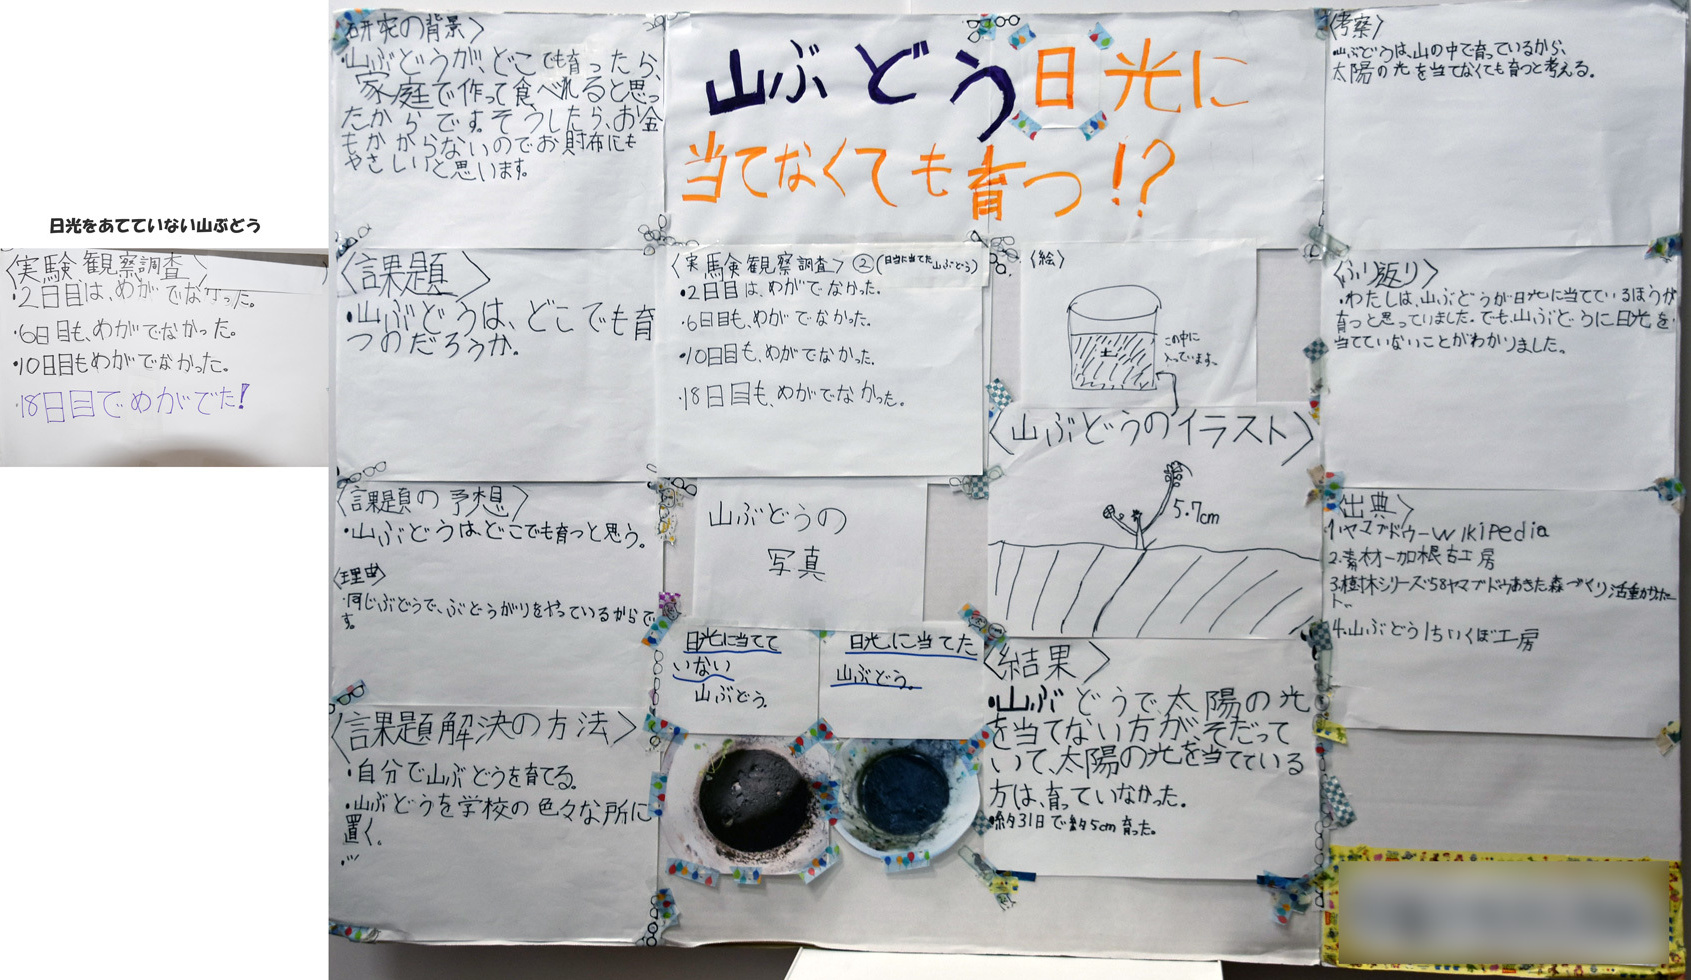 日光をあてていない山ぶどう
〈実験、観察調査〉
・2日目は、めがでなかった。
・6日目も、めがでなかった。
・10日目もめがでなかった。
・18日目でめがでた!
研究の背景〉
・山ぶどうが、どこでも育ったら、
家庭で作って食べれると思っ
たからです。そうしたら、お金
もかからないのでお財布にも
やさしいと思います。
山ぶどう日光に
当てなくても育つ!?
〈課題〉
・山ぶどうは、どこでも育
つのだろうか。
〈課題の予想〉
・山ぶどうは、どこでも育つと思う。
〈理由〉
・同じぶどうで、ぶどうがりをやっているからで
す。
〈課題解決の方法〉
・自分で山ぶどうを育てる。
・山ぶどうを学校の色々な所に
置く。
〈実験観察調査〉②(日当に当てた山ぶどう)
・2日目は、めがでなかった。
・6日目も、めがでなかった。
・10日目も、めがでなかった。
・18日目も、めがでなかった。
山ぶどうの
写真
日光に当てて
いない
山ぶどう。
日光に当てた
山ぶどう。
〈絵〉
土
この中に
入っています。
〈山ぶどうのイラスト〉
5.7cm
〈結果〉
・山ぶどうで、太陽の光
を当てない方が、そだって
いて、太陽の光を当てている
方は、育っていなかった。
・約31日で約5cm育った。
〈考察〉
・山ぶどうは、山の中で育っているから、
太陽の光を当てなくても育つと考える。
〈ふり返り〉
・わたしは、山ぶどうが日光に当てているほうが
育つと思っていました。でも、山ぶどうに日光を
当てていないことがわかりました。
〈出典〉
1.ヤマブドウーWikipedia
2.素材ー加根古工房
3.樹木シリーズ58ヤマブドウあきた森づくり活重かサポート
4.山ぶどう|ちいくぼ工房